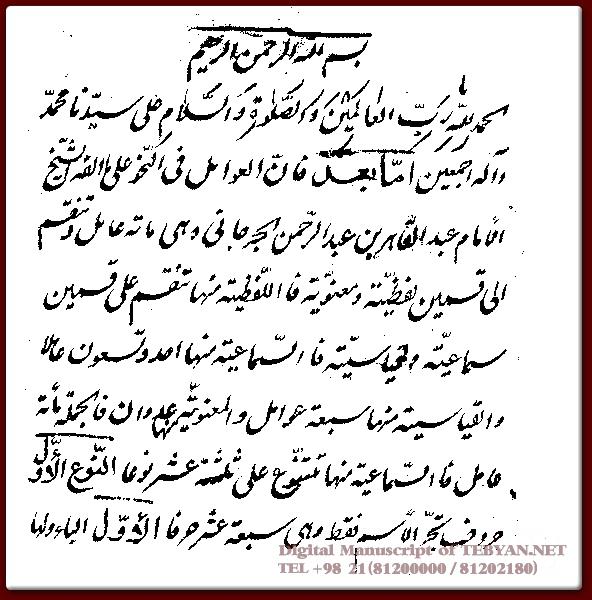 بسم الله الرحمن الرحيم
الحمد لله رب العالمين والصلوة والسلام على سيدنا محمد
وآله اجمعين اما بعد فان العوامل فى النحو على ما الفه الشيخ
الامام عبد القاهر بن عبد الرحمن الجرجانى وهى مائة عامل وتنقسم
الى قسمين لفظية ومعنوية فاللفظية منها تنقسم على قسمين
سماعية وقياسية فالسماعية منها احد وتسعون عاملا
والقياسية منها سبعة عوامل والمعنوية منها عددان فالجملة مأة
عامل فالسماعية منها تتنوع على ثلثة عشر نوعا النوع الاول
حروف تجر الاسم فقط وهى سبعة عشر حرفا الاول الباء ولها
Digital Manuscript of TEBYAN.NET
TEL +98 21(81200000 / 81202180)